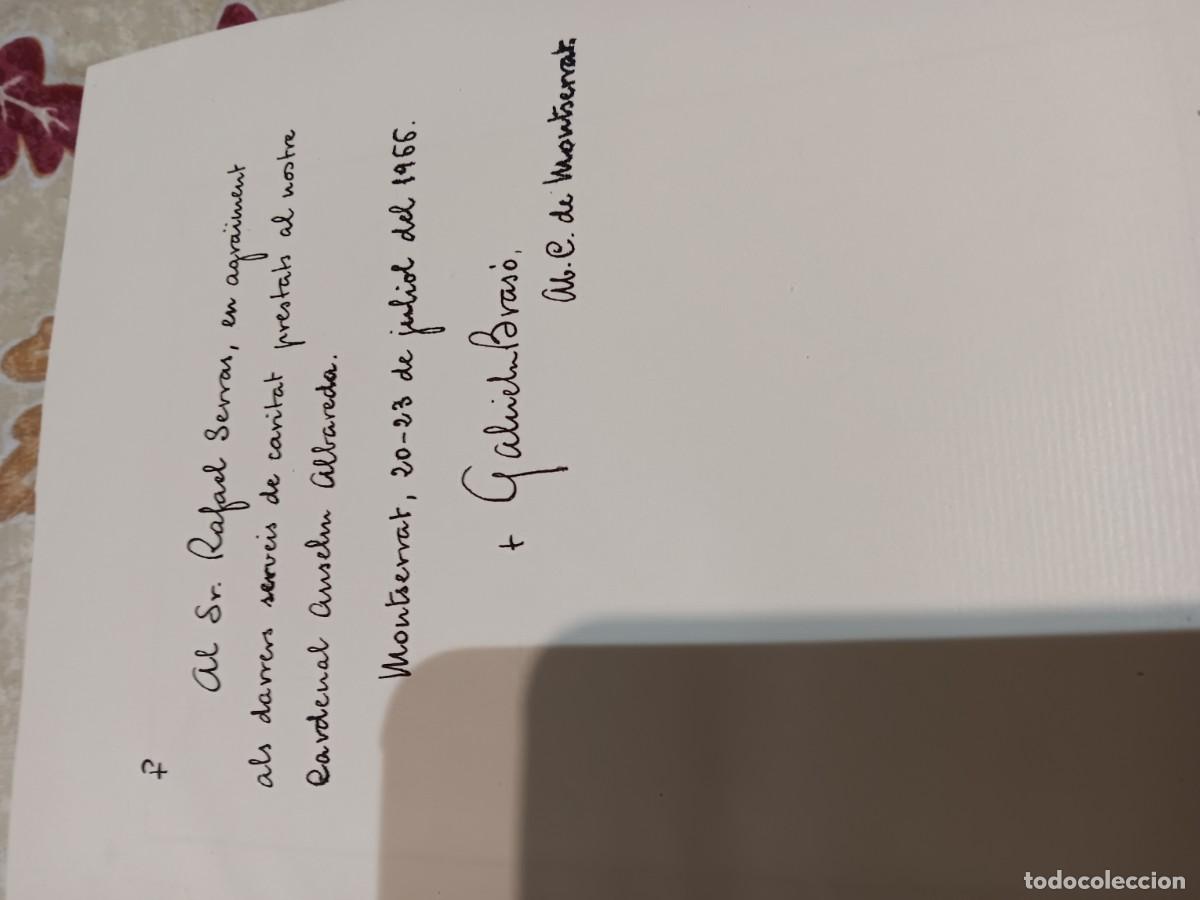 Al Sr. Rafael Serras, en agraïment
als darrers serveis de caritat prestats al nostre
Cardenal Anselm Albareda.
Montserrat, 20-23 de juliol del 1966.
+ Gabriel M Brasó,
Ab. C. de Montserrat.
todocoleccion